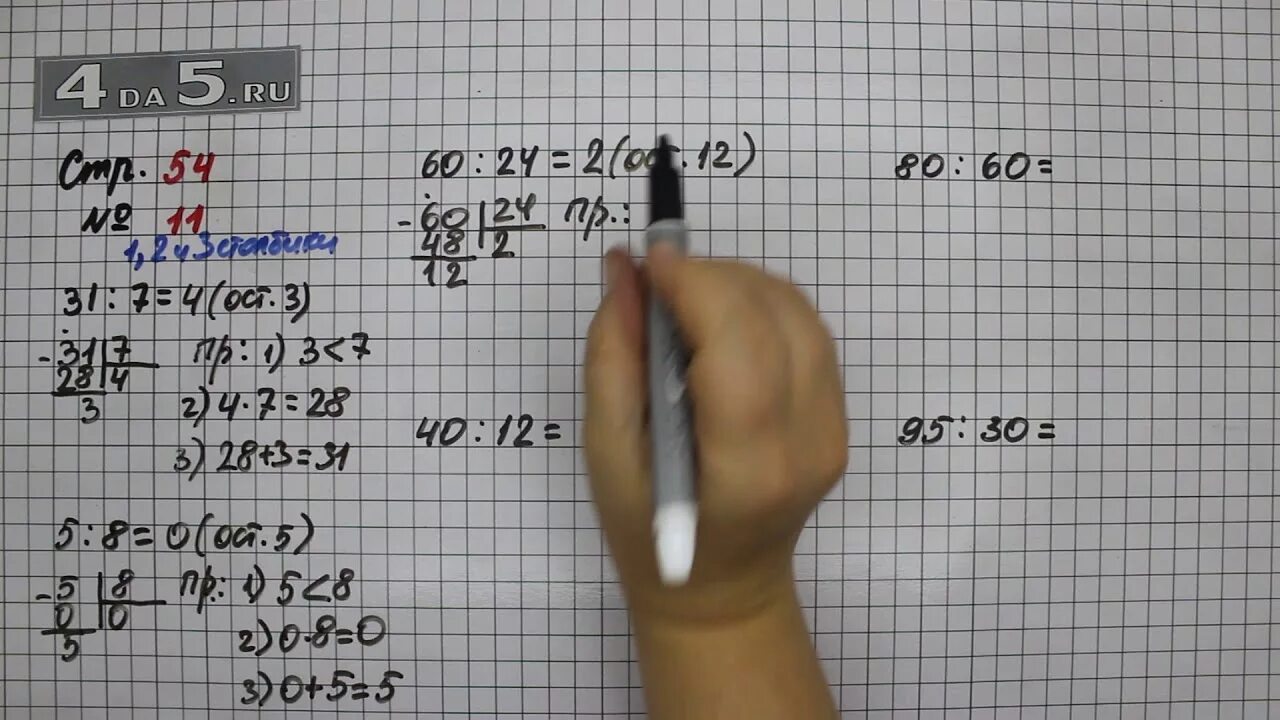 4 DA 5.RU
Стр. 54
№ 11
1, 2 и 3 столбики
31 : 7 = 4 (ост. 3)
- 31 | 7
28 | 4
3
пр: 1) 3 < 7
2) 4 · 7 = 28
3) 28 + 3 = 31
5 : 8 = 0 (ост. 5)
- 5 | 8
0 | 0
5
пр.: 1) 5 < 8
2) 0 · 8 = 0
3) 0 + 5 = 5
60 : 24 = 2 (ост. 12)
- 60 | 24
48 | 2
12
пр.:
40 : 12 =
80 : 60 =
95 : 30 =